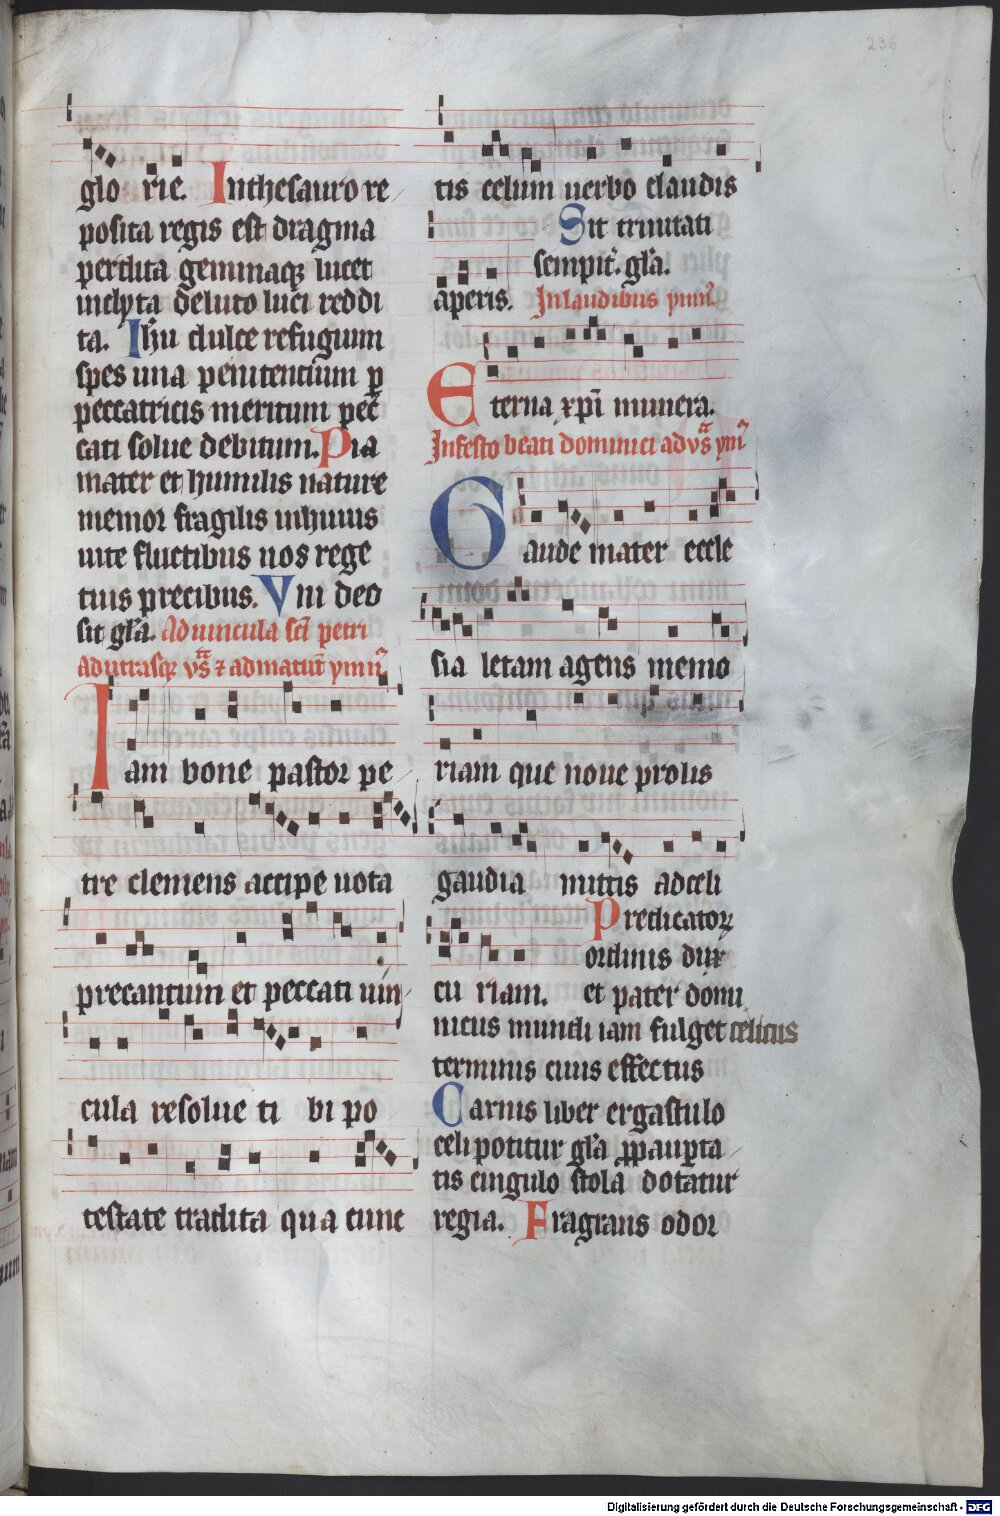 236
glo rie. Inthesauro re
posita regis est dragma
perdita gemmaqꝫ lucet
inclyta deluto luci reddi
ta. Ihu dulce refugium
spes una penitentium ꝑ
peccatricis meritum pec̄
cati solue debitum. Pia
mater et humilis nature
memor fragilis inhuius
uite fluctibus nos rege
tuis precibus. Vni deo
sit gl̄a. Aduincula sc̄i petri
adutrasqꝫ vs̄ ⁊ admatut̄ ymn̄.
Iam bone pastor pe
tre clemens accipe uota
precantum et peccati uin
cula resolue ti bi po
testate tradita qua cunc
tis celum uerbo claudis
Sit trinitati
sempit̄. gl̄a.
aperis. Inlaudibus ymn̄.
Eterna xp̄i munera.
Infesto beati dominici advs̄ ym̄
Gaude mater eccle
sia letam agens memo
riam que noue prolis
gaudia mittis adceli
Predicatoꝝ
ordinis dux
cu riam. et pater domi
nicus mundi iam fulget celicus
terminis ciuis effectus
Carnis liber ergastulo
celi potitur gl̄a ꝓpauꝑta
tis cingulo stola dotatur
regia. Fragrans odor
Digitalisierung gefördert durch die Deutsche Forschungsgemeinschaft - DFG